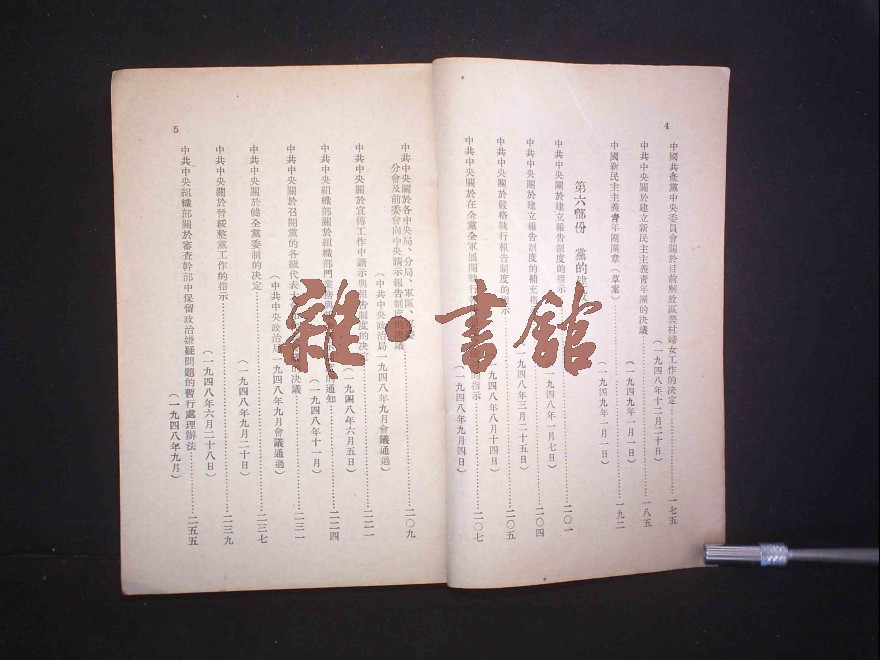 4
中國共產黨中央委員會關於目前解放區農村婦女工作的決定……一七五
（一九四八年十二月二十日）
中共中央關於建立新民主主義青年團的決議……一八五
（一九四九年一月一日）
中國新民主主義青年團團章（草案）……一九二
（一九四九年一月一日）
第六部份　黨的建設
中共中央關於建立報告制度的指示……二〇一
（一九四八年一月七日）
中共中央關於建立報告制度的補充指……二〇四
一九四八年三月二十五日）
中共中央關於嚴格執行報告制度的指示……二〇五
一九四八年八月十四日）
中共中央關於在全黨全軍展開執行　的指示……二〇七
（一九四八年九月四日）
5
中共中央關於各中央局、分局、軍區、
分會及前委會向中央請示報告制度的決議……二〇九
（中共中央政治局一九四八年九月會議通過）
中共中央關於宣傳工作中請示與報告制度的決定……二二一
（一九四八年六月五日）
中共中央組織部關於組織部門業務與　的通知……二二四
（一九四八年十一月）
中共中央關於召開黨的各級代表大　的決議……二三一
（中共中央政治局一九四八年九月會議通過）
中共中央關於健全黨委制的決定……二三七
（一九四八年九月二十日）
中共中央關於晉綏整黨工作的指示……二三九
（一九四八年六月二十八日）
中共中央組織部關於審查幹部中保留政治嫌疑問題的暫行處理辦法……二五五
（一九四八年九月）
雜·書館